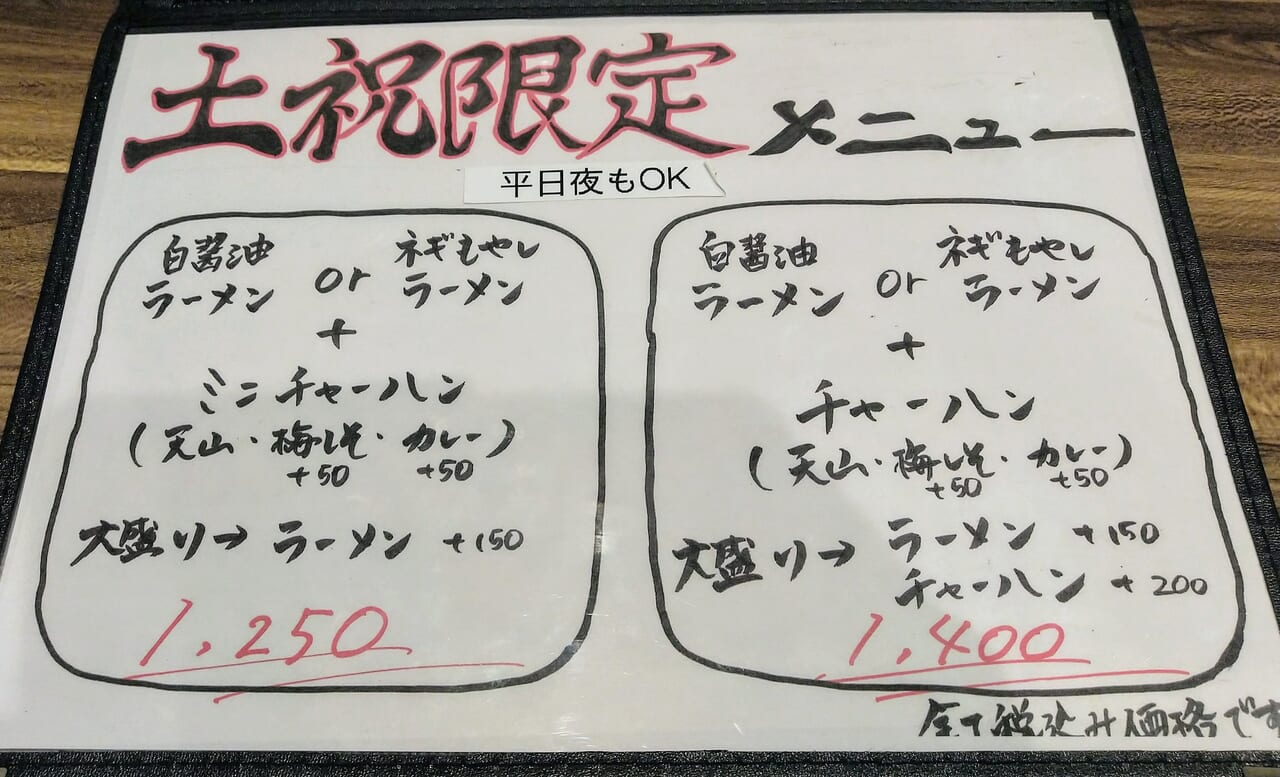 土祝限定メニュー
平日夜もOK
白醤油ラーメン or ネギもやしラーメン
+
ミニチャーハン
(天山・梅しそ・カレー)
+50 +50
大盛り→ラーメン +150
1,250
白醤油ラーメン or ネギもやしラーメン
+
チャーハン
(天山・梅しそ・カレー)
+50 +50
大盛り→ラーメン +150
チャーハン +200
1,400
全て税込み価格です